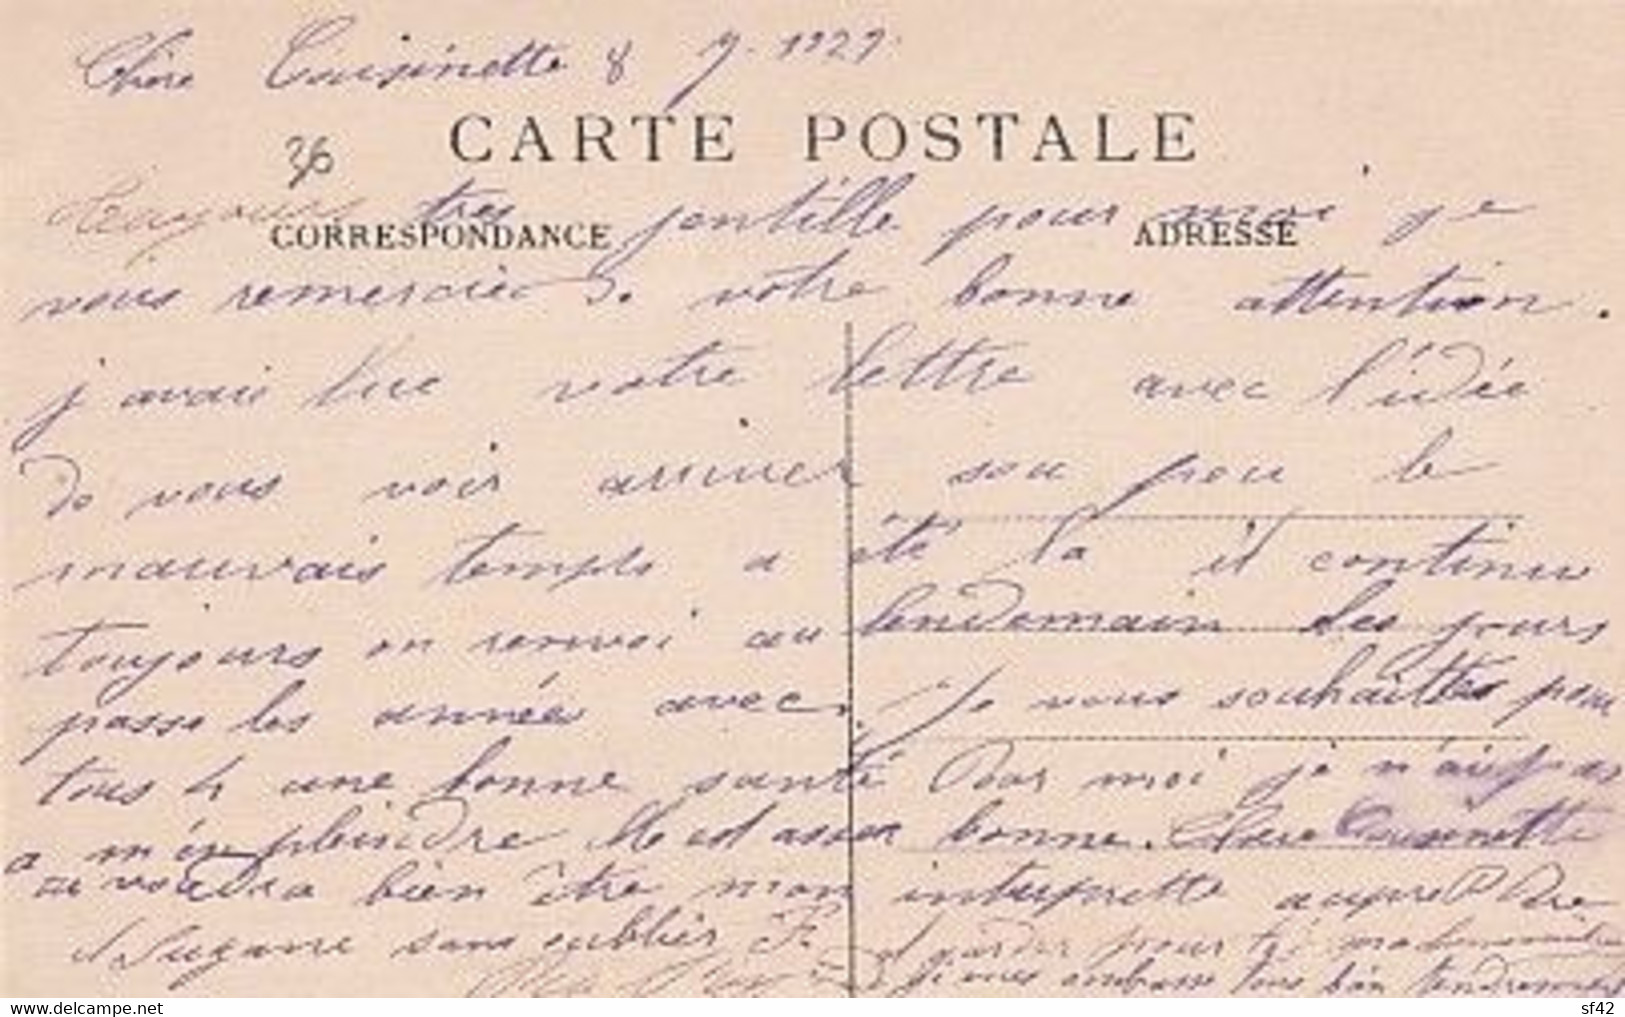 Chère Cousinette 8 7. 1929.
CARTE POSTALE
36
Toujours très gentille pour moi je
CORRESPONDANCE
ADRESSE
vous remercie de votre bonne attention.
j avais lue votre lettre avec l'idée
de vous voir arriver sou peu le
mauvais temps a été la il continu
toujours on renvoi au lendemain les jours
passe les année avec. Je vous souhaittes pour
tous 4 une bonne santé Pour moi je n'ais pas
a m'en pleindre elle est assez bonne. Chère Cousinette
voudra bien être mon interprette aupre
et Suzanne sans oublier
et garder pour
je vous embrasse tous bien tendrement
hello my name is
sf42